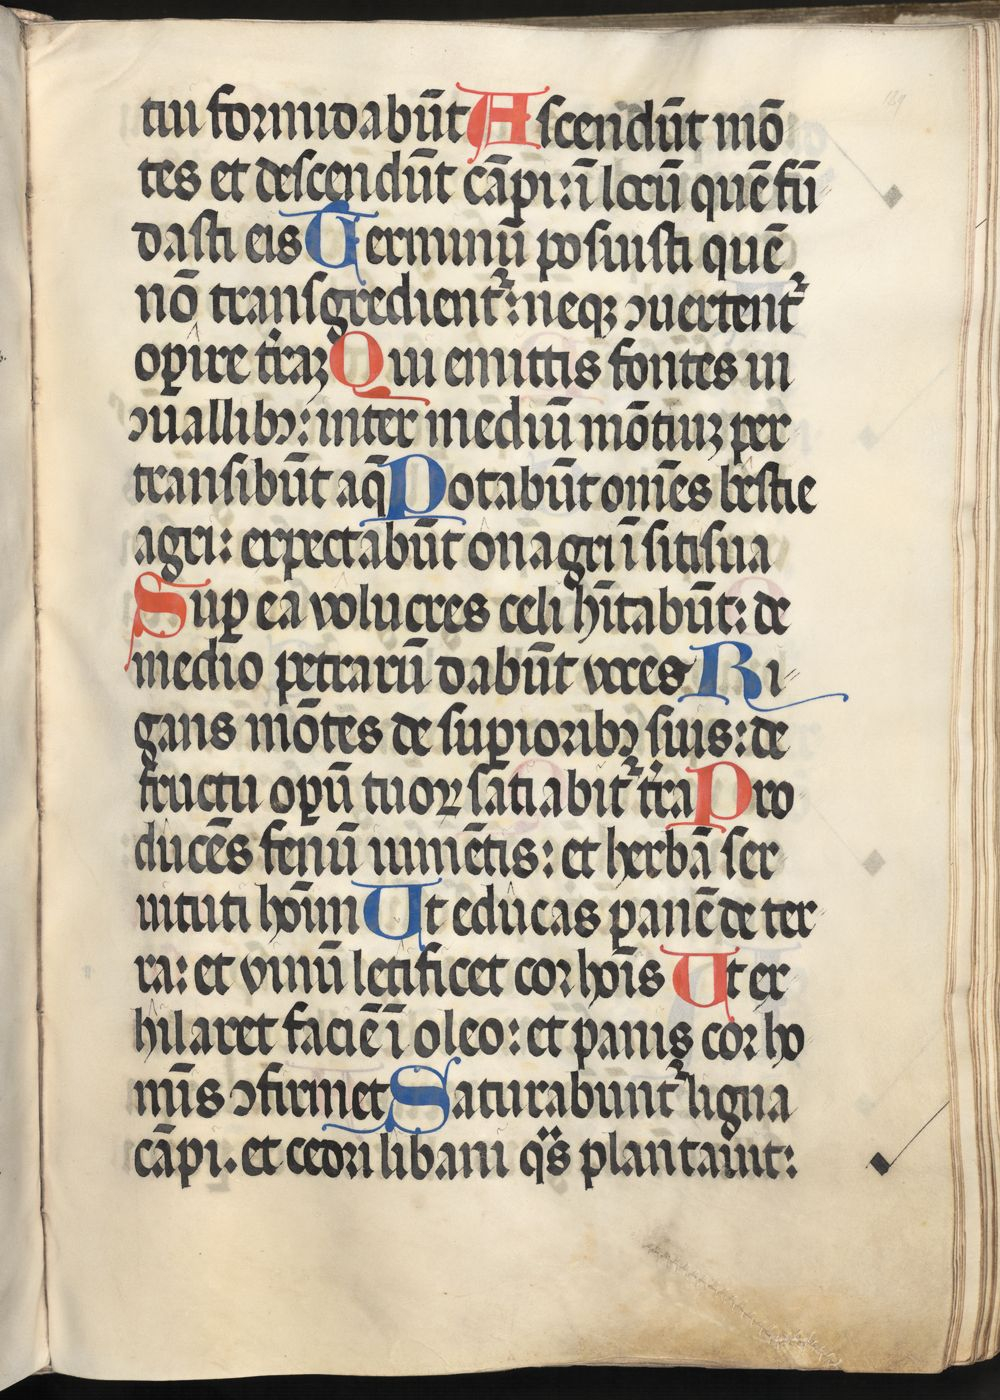 tui formidabūt Ascendūt mō
tes et descendūt cāpi: ī locū quē fū
dasti eis Terminū posuisti quē
nō transgredient᷑: neqꝫ ꝯuertent᷑
oꝑire t̄raꝫ Qui emittis fontes in
ꝯuallibꝰ: inter mediū mōtiuꝫ per
transibūt aq̄ Potabūt om̄es bestie
agri: expectabūt onagri ī siti sua
Suꝑ ea volucres celi hītabūt: de
medio petrarū dabūt voces Ri
gans mōtes de suꝑioribꝰ suis: de
fructu oꝑū tuoꝝ satiabit᷑ t̄ra Pro
ducēs fenū iumētis: et herbā ser
uituti hoīm Ut educas panē de ter
ra: et vinū letificet cor hoīs Ut ex
hilaret faciē ī oleo: et panis cor ho
mīs ꝯfirmet Saturabunt᷑ ligna
cāpi. et cedri libani q̄s plantauit:
189